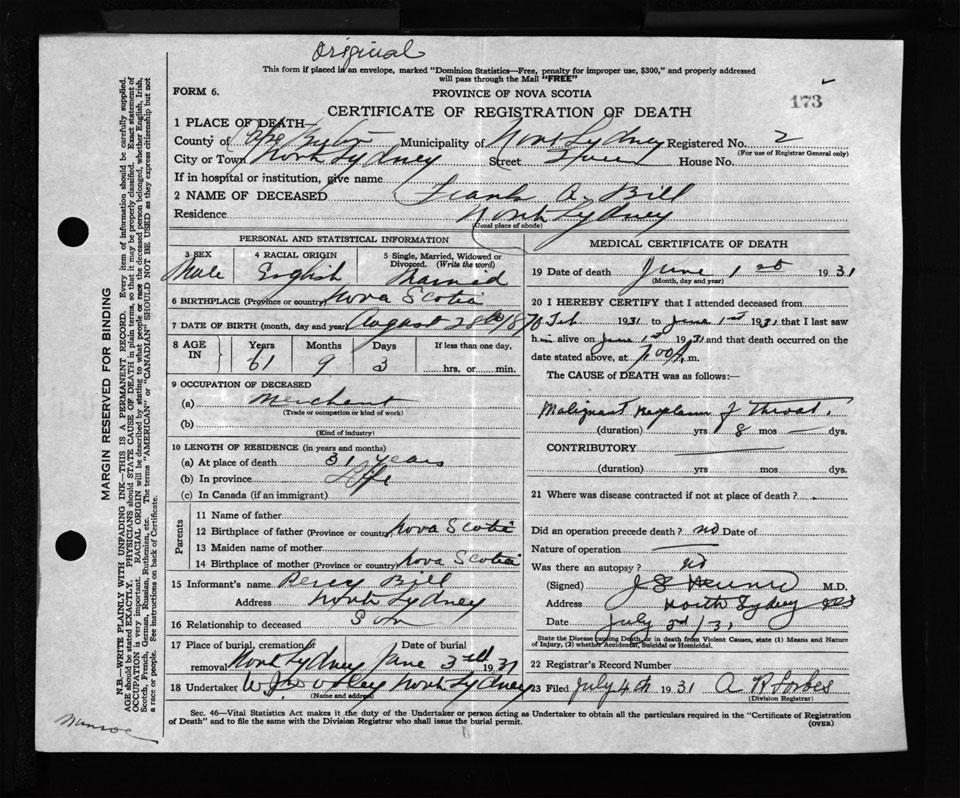 Original
This form if placed in an envelope, marked "Dominion Statistics—Free, penalty for improper use, $300," and properly addressed
will pass through the Mail "FREE"
FORM 6.
PROVINCE OF NOVA SCOTIA
173
CERTIFICATE OF REGISTRATION OF DEATH
1 PLACE OF DEATH
County of Cape Breton Municipality of North Sydney Registered No. 2
(For use of Registrar General only)
City or Town North Sydney Street House No.
If in hospital or institution, give name
2 NAME OF DECEASED Frank A. Bill
Residence North Sydney
(Usual place of abode)
PERSONAL AND STATISTICAL INFORMATION
3 SEX Male
4 RACIAL ORIGIN English
5 Single, Married, Widowed or Divorced. (Write the word) Married
6 BIRTHPLACE (Province or country) Nova Scotia
7 DATE OF BIRTH (month, day and year) August 28th 1870
8 AGE IN Years Months Days If less than one day,
61 9 3 hrs. or min.
9 OCCUPATION OF DECEASED
(a) Merchant
(Trade or occupation or kind of work)
(b)
(Kind of industry)
10 LENGTH OF RESIDENCE (in years and months)
(a) At place of death 31 years
(b) In province Life
(c) In Canada (if an immigrant)
Parents
11 Name of father
12 Birthplace of father (Province or country) Nova Scotia
13 Maiden name of mother
14 Birthplace of mother (Province or country) Nova Scotia
15 Informant's name Percy Bill
Address North Sydney
16 Relationship to deceased Son
17 Place of burial, cremation or removal North Sydney Date of burial June 3rd 1931
18 Undertaker North Sydney
(Name and address)
MEDICAL CERTIFICATE OF DEATH
19 Date of death June 1st 1931
(Month, day and year)
20 I HEREBY CERTIFY that I attended deceased from
Feb 1931 to June 1st 1931 that I last saw
him alive on June 1st 1931 and that death occurred on the
date stated above, at 7.00 A.m.
The CAUSE of DEATH was as follows:—
Malignant Neoplasm of Throat.
(duration) yrs 8 mos — dys.
CONTRIBUTORY
(duration) yrs mos dys.
21 Where was disease contracted if not at place of death?
Did an operation precede death? no Date of
Nature of operation —
Was there an autopsy? no
(Signed) M.D.
Address North Sydney
Date July 3rd/31
State the Disease causing Death or in death from Violent Causes, state (1) Means and Nature
of Injury, (2) whether Accidental, Suicidal or Homicidal.
22 Registrar's Record Number
23 Filed July 4th 1931 A R Forbes
(Division Registrar)
Sec. 46—Vital Statistics Act makes it the duty of the Undertaker or person acting as Undertaker to obtain all the particulars required in the "Certificate of Registration
of Death" and to file the same with the Division Registrar who shall issue the burial permit.
(OVER)
MARGIN RESERVED FOR BINDING
N.B.—WRITE PLAINLY WITH UNFADING INK—THIS IS A PERMANENT RECORD. Every item of information should be carefully supplied.
AGE should be stated EXACTLY. PHYSICIANS should STATE CAUSE OF DEATH in plain terms, so that it may be properly classified. Exact statement of
OCCUPATION is very important. RACIAL ORIGIN will be described by stating to what people or race the deceased person belonged, whether English, Irish,
Scotch, French, German, Russian, Ruthenian, etc. The terms "AMERICAN" or "CANADIAN" SHOULD NOT BE USED as they express citizenship but not
a race or people. See instructions on back of Certificate.
Munroe